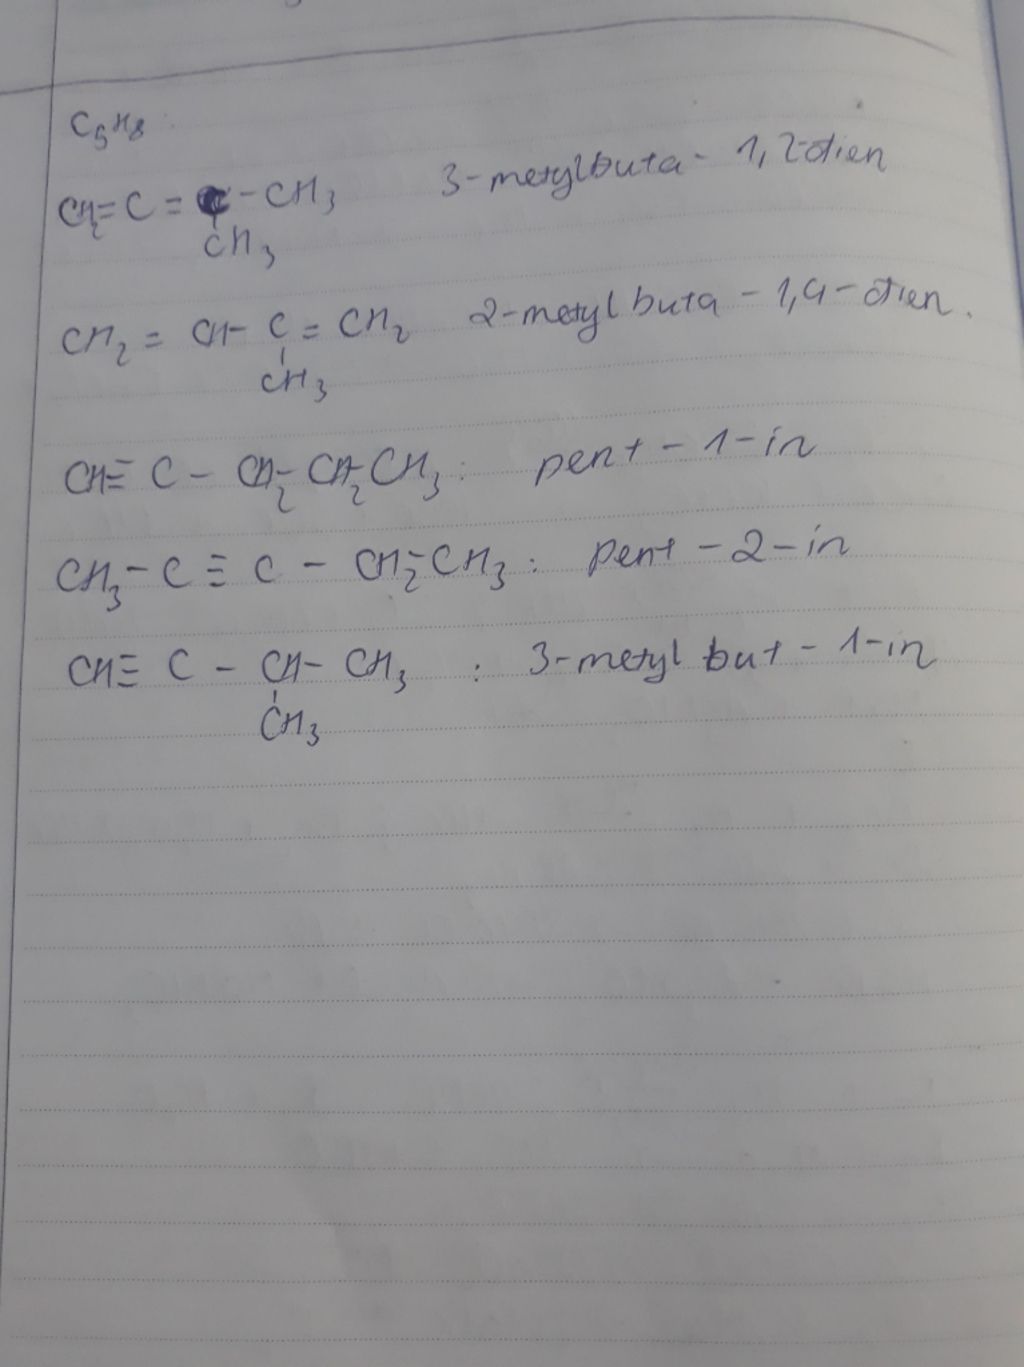 C5H8
CH2=C=C-CH3 3-metylbuta-1,2-dien
CH3
CH2=CH-C=CH2 2-metyl buta-1,4-dien.
CH3
CH≡C-CH2-CH2CH3: pent-1-in
CH3-C≡C-CH2-CH3: pent-2-in
CH≡C-CH-CH3: 3-metyl but-1-in
CH3